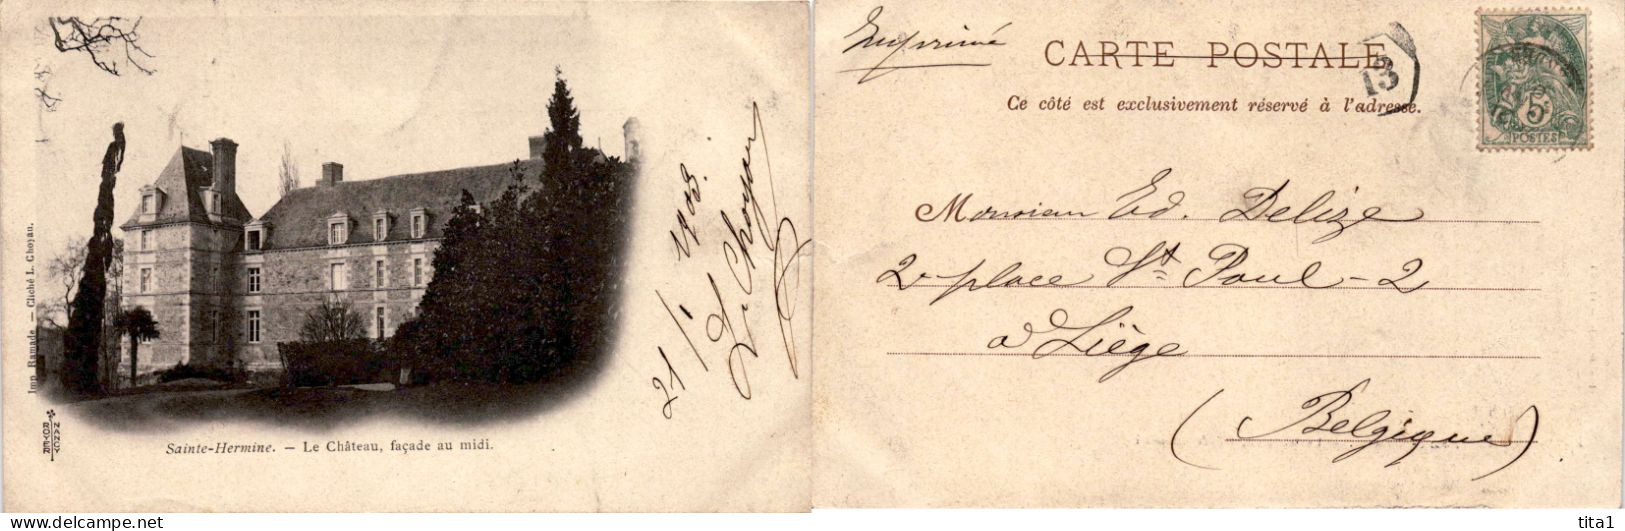 Imp. Ramade. — Cliché L. Choyau.
ROYER NANCY
Sainte-Hermine. — Le Château, façade au midi.
21/1 1903.
L. Choyau
Imprimé
CARTE POSTALE
13
Ce côté est exclusivement réservé à l'adresse.
5
POSTES
Monsieur Ed. Delize
2 place St Paul - 2
à Liège
(Belgique)
delcampe.net
tita1